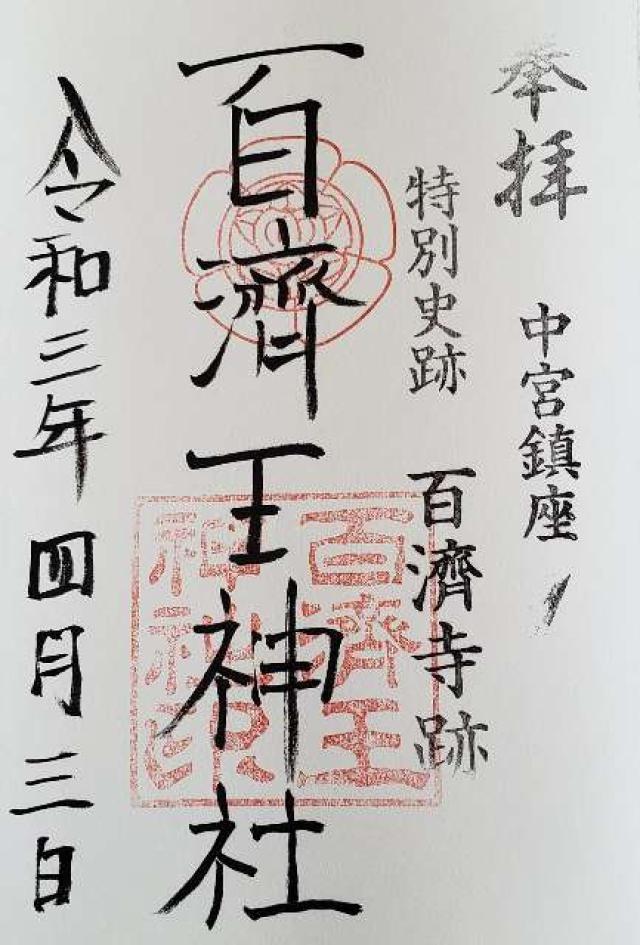 奉拝
中宮鎮座
特別史跡 百濟寺跡
百濟王神社
百濟王
神社印
令和三年四月三日